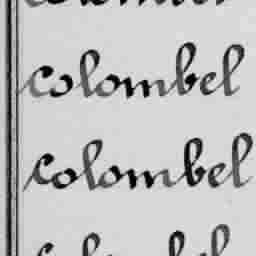 colombel
colombel